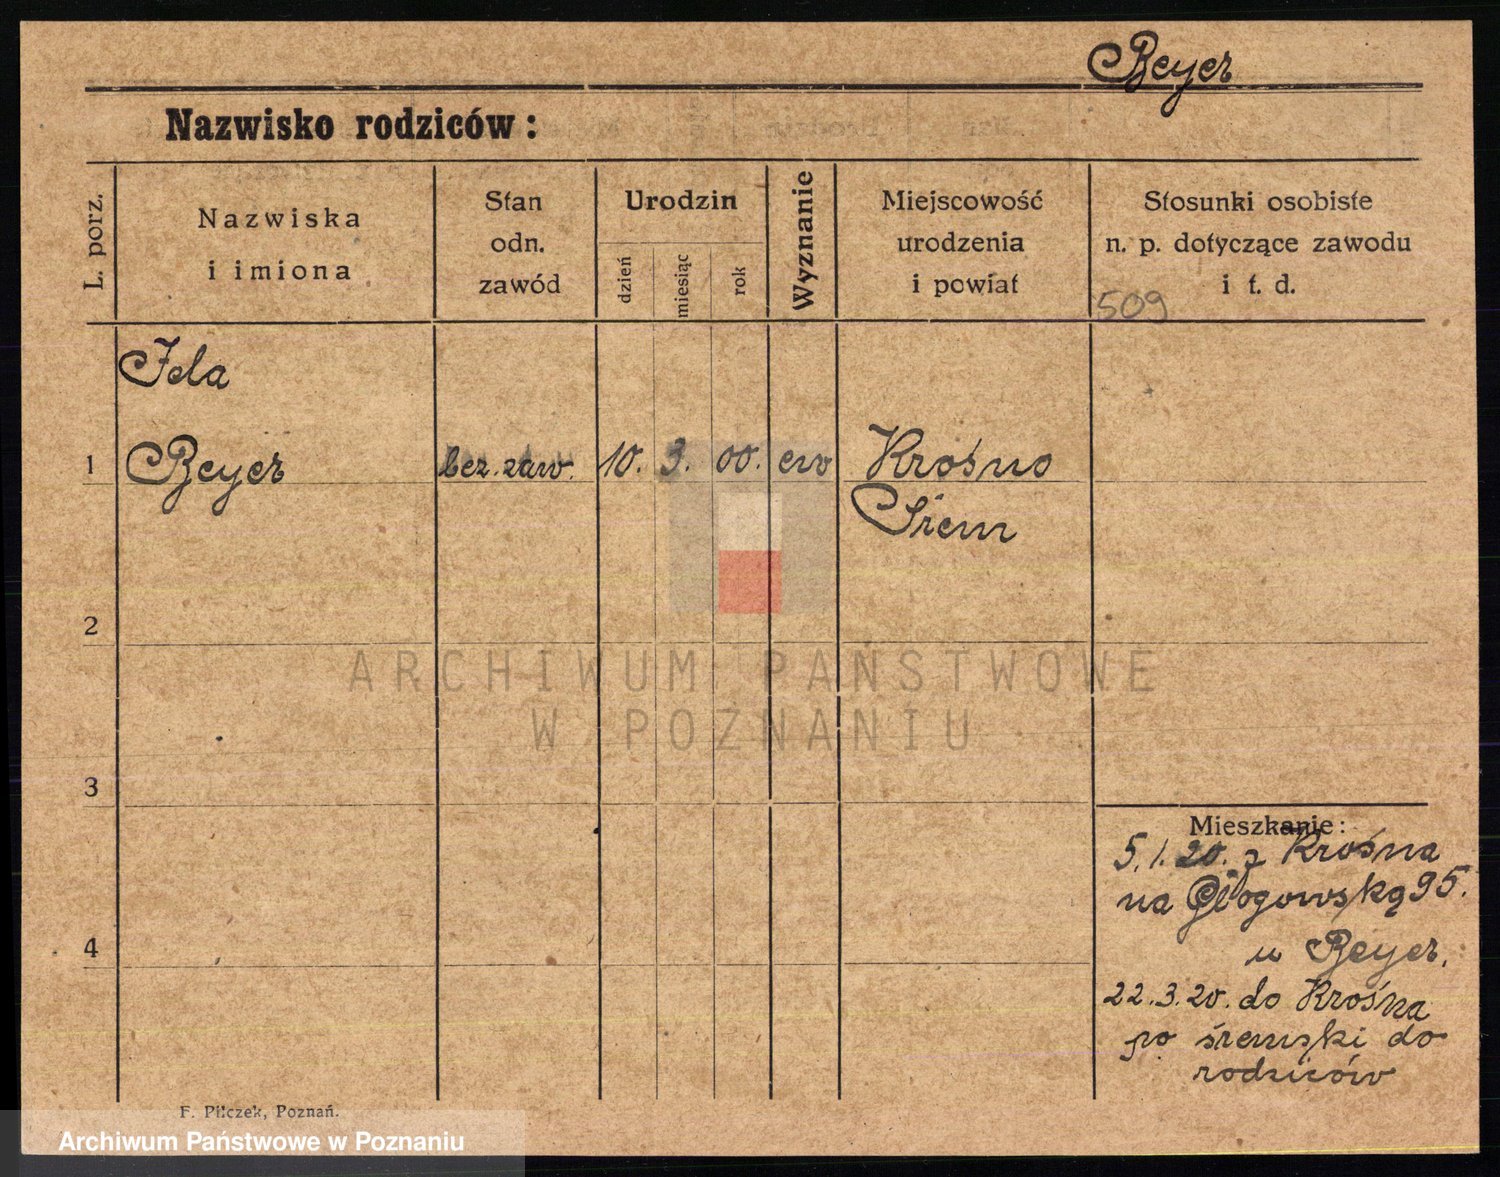 Beyer
Nazwisko rodziców:
L. porz.
Nazwiska
i imiona
Stan
odn.
zawód
Urodzin
dzień
miesiąc
rok
Wyznanie
Miejscowość
urodzenia
i powiat
Stosunki osobiste
n. p. dotyczące zawodu
i t. d.
509
Jela
1 Beyer bez. zaw. 10. 3. 00. ew Krośno
Śrem
2
3
4
ARCHIWUM PAŃSTWOWE
W POZNANIU
Mieszkanie:
5.1.20. z Krośna
na Głogowską 95.
u Beyer.
22.3.20. do Krośna
po śremski do
rodziców
F. Pilczek, Poznań.
Archiwum Państwowe w Poznaniu